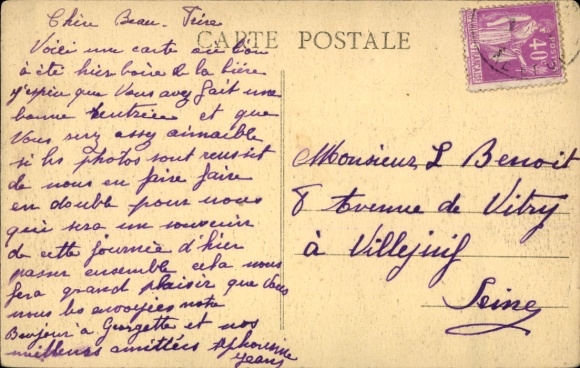 Cher Beau-Frère
Voici une carte où l'on
à été hier boire de la bière
j'espère que Vous avez fait une
bonne rentrée et que
Vous sery assy aimaible
si les photos sont reussit
de nous en faire faire
en double pour nous
qui sera un souvenir
de cette journée d'hier
passer ensemble cela nous
fera grand plaisir que Vous
nous les envoyiées notre
Bonjour à Georgette et nos
meilleurs amittiées Alphonsine
Jean
CARTE POSTALE
40c
Monsieur L Benoit
8 Avenue de Vitry
à Villejuif
Seine